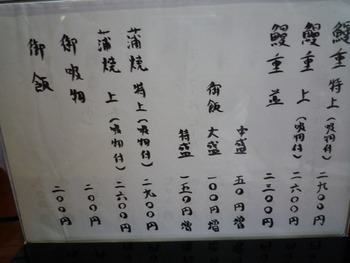 鰻重 特上(吸物付) 二九〇〇円
鰻重 上(吸物付) 二六〇〇円
鰻重 並 二三〇〇円
中盛 五〇円増
御飯 大盛 一〇〇円増
特盛 一五〇円増
蒲焼 特上(吸物付) 二九〇〇円
蒲焼 上(吸物付) 二六〇〇円
御吸物 二〇〇円
御飯 二〇〇円